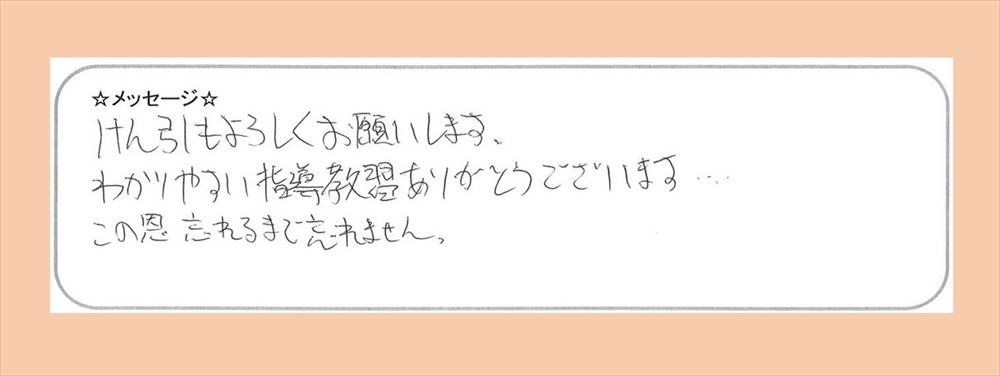 ☆メッセージ☆
けん引もよろしくお願いします、
わかりやすい指導教習ありがとうございます…
この恩 忘れるまで忘れません。